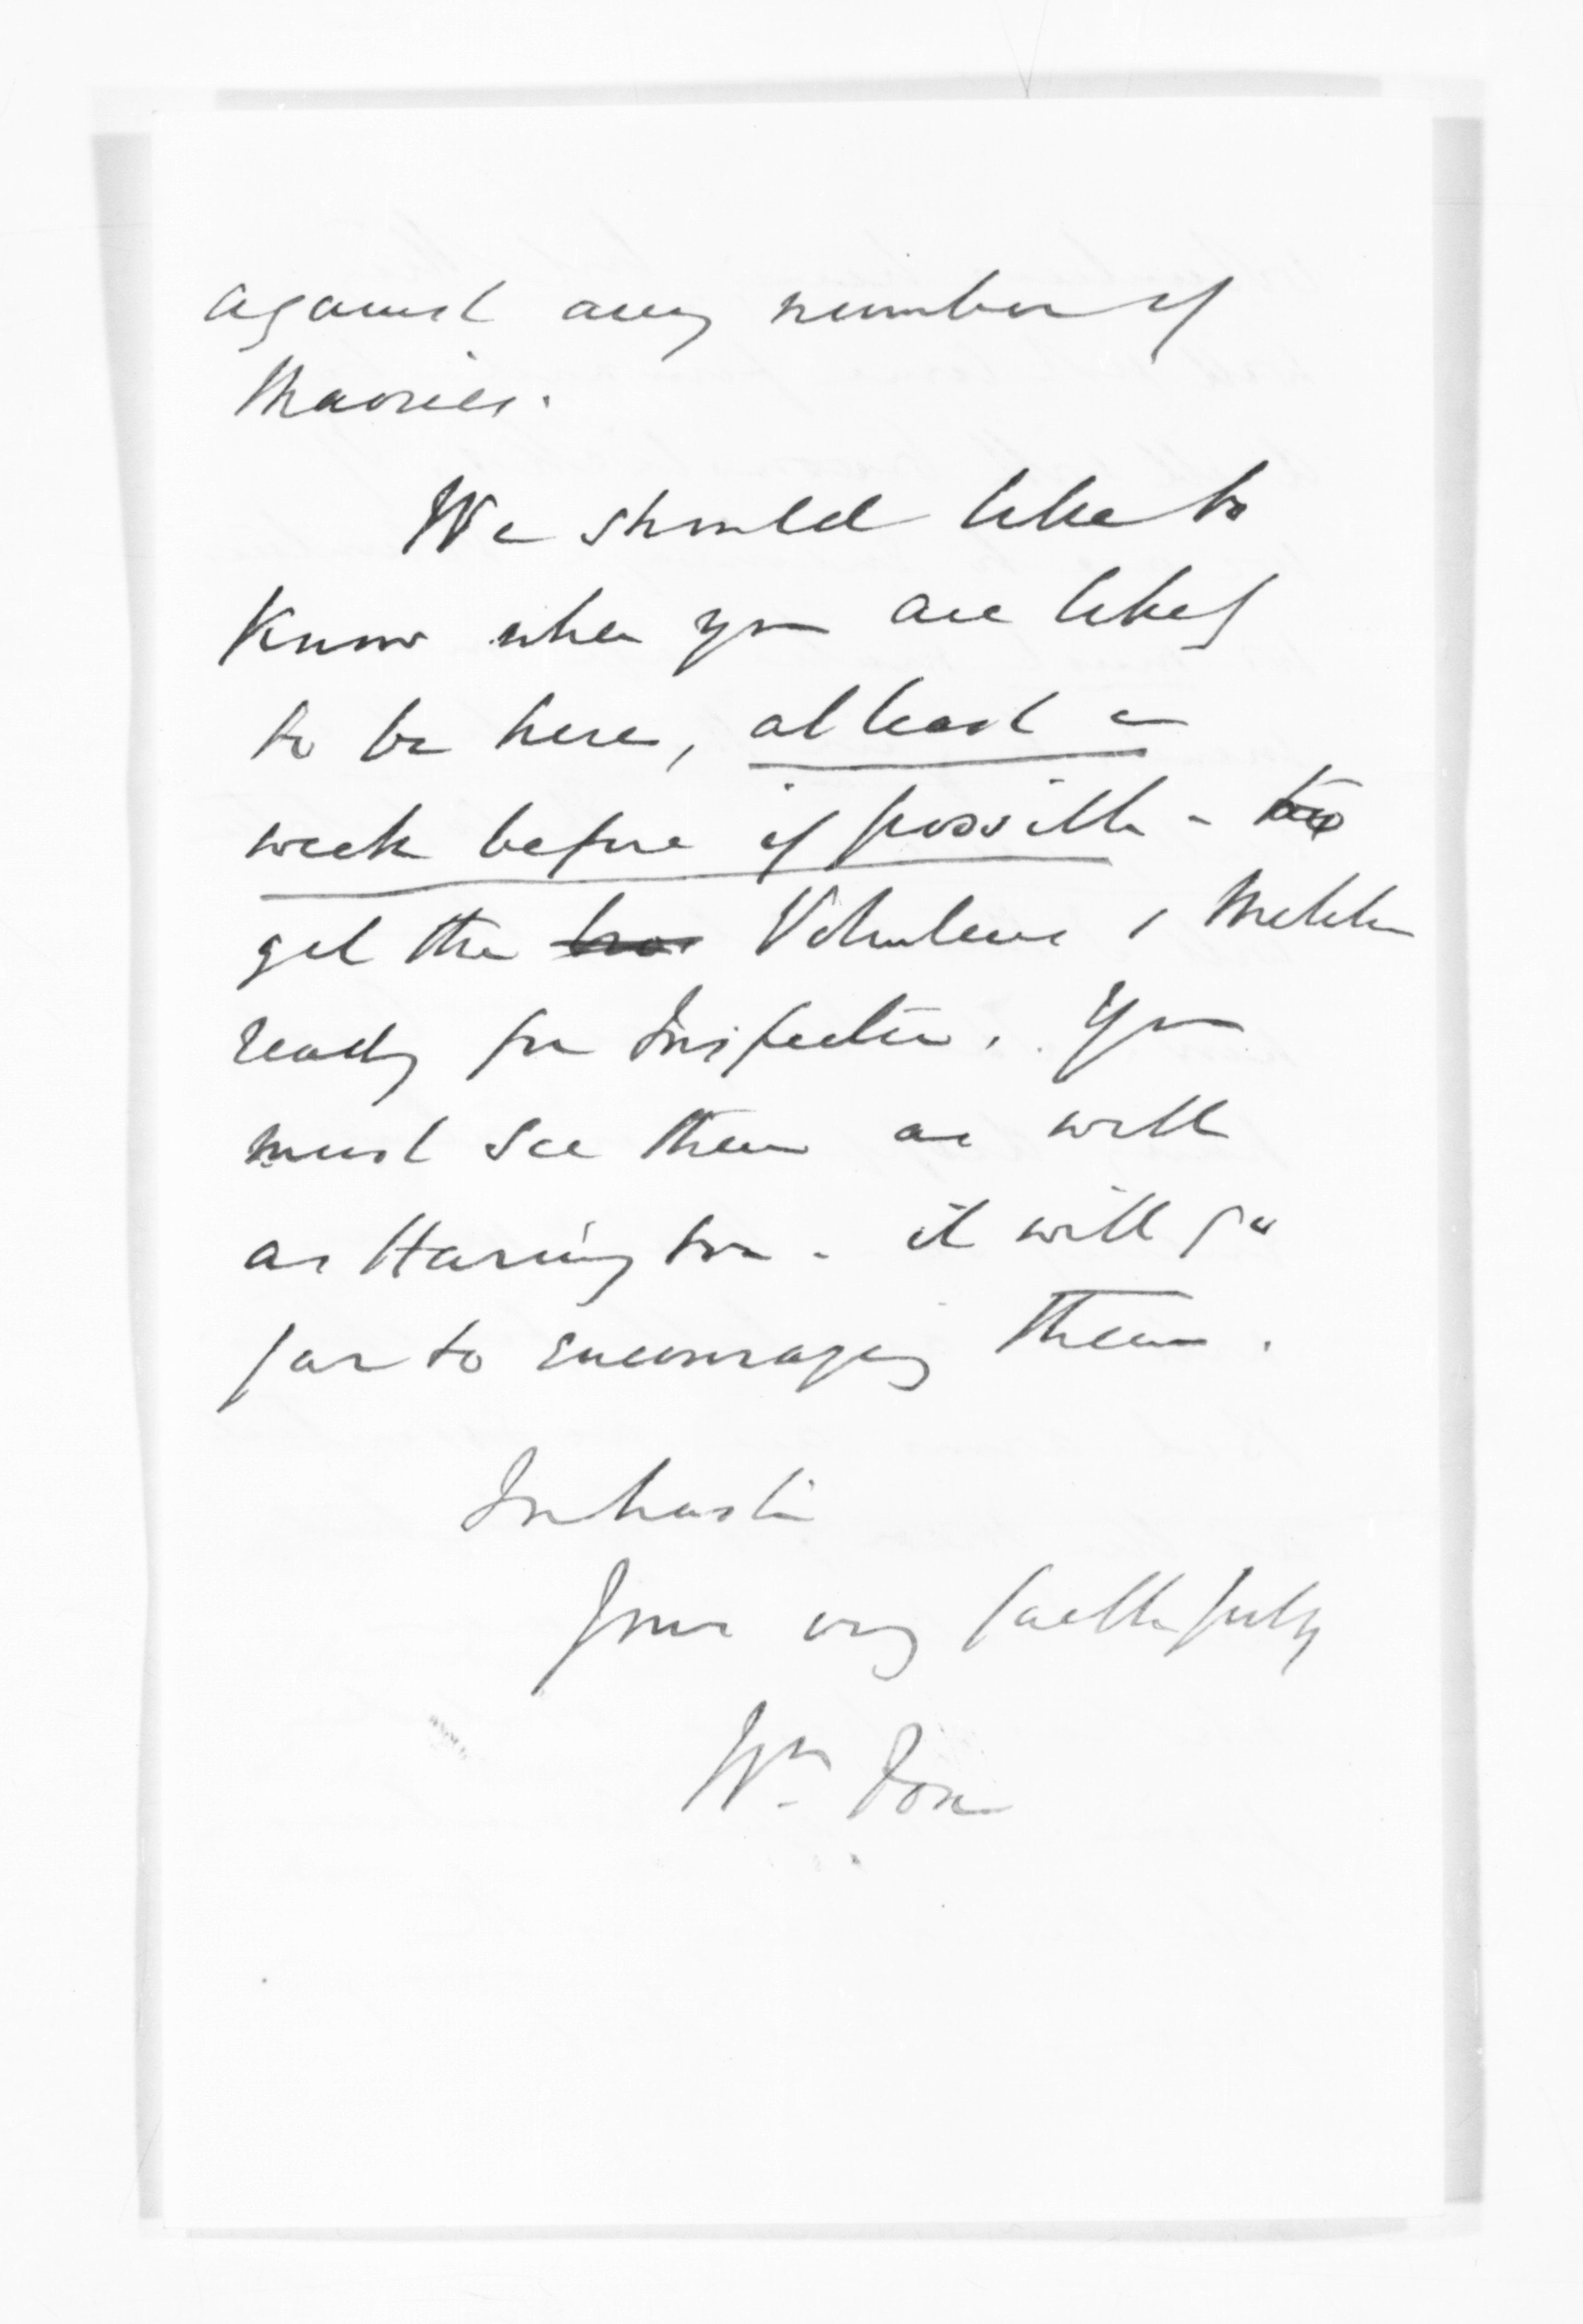 against any number of
Maories.
We should like to
know when you are likely
to be here, at least a
week before if possible - to
get the Volunteers & Militia
ready for Inspection. You
must see them as well
as Harington - it will go
far to encouraging them.
In haste
Yours very faithfully
Wm Fox